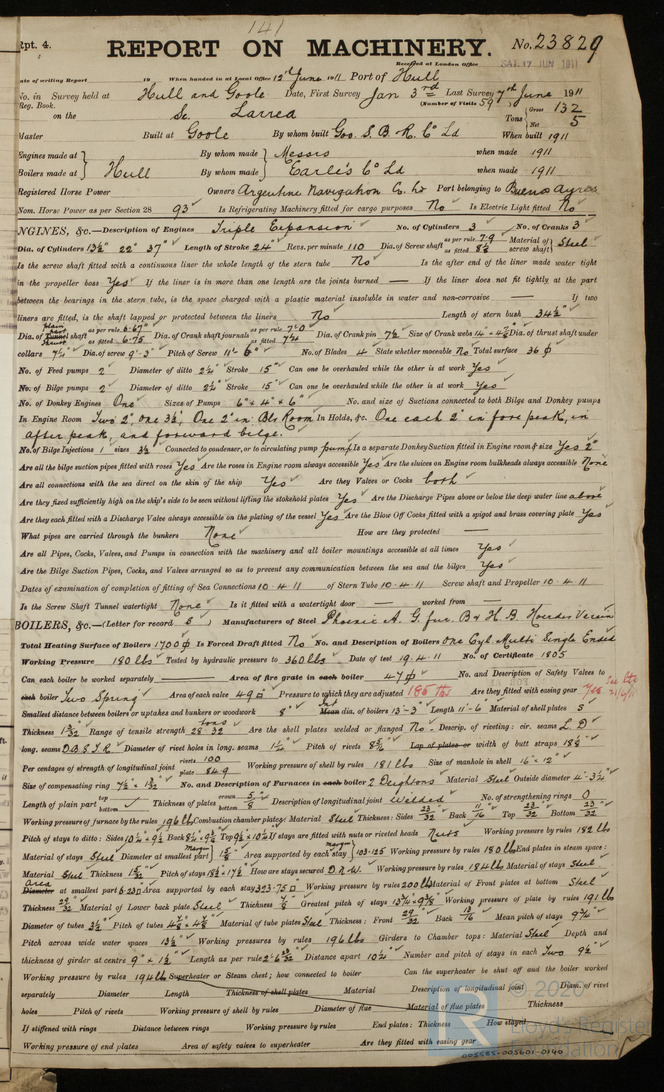 141
Rpt. 4. REPORT ON MACHINERY. No. 23829
Received at London Office SAT. 17 JUN 1911
Date of writing Report 19 When handed in at Local Office 15th June 1911 Port of Hull
No. in Survey held at Hull and Goole Date, First Survey Jan 3rd Last Survey 7th June 1911
Reg. Book. (Number of Visits 59
on the Sc. Larrea Tons { Gross 132 Net 5
Master Built at Goole By whom built Goo. S. B. & R. Co Ld When built 1911
Engines made at } By whom made } Messrs when made 1911
Boilers made at } Hull By whom made } Earle's Co Ld when made 1911
Registered Horse Power Owners Argentine Navigation Co. Ld Port belonging to Buenos Ayres
Nom. Horse Power as per Section 28 93 Is Refrigerating Machinery fitted for cargo purposes No Is Electric Light fitted No
ENGINES, &c.—Description of Engines Triple Expansion No. of Cylinders 3 No. of Cranks 3
Dia. of Cylinders 13½" 22" 37" Length of Stroke 24" Revs. per minute 110 Dia. of Screw shaft as per rule 7.9 as fitted 8½ Material of screw shaft } Steel
Is the screw shaft fitted with a continuous liner the whole length of the stern tube No Is the after end of the liner made water tight
in the propeller boss Yes If the liner is in more than one length are the joints burned — If the liner does not fit tightly at the part
between the bearings in the stern tube, is the space charged with a plastic material insoluble in water and non-corrosive — If two
liners are fitted, is the shaft lapped or protected between the liners No Length of stern bush 34½"
Dia. of Tunnel shaft as per rule 6.67" as fitted 6.75 Dia. of Crank shaft journals as per rule 7.0 as fitted 7¼ Dia. of Crank pin 7½ Size of Crank webs 14" × 4½ Dia. of thrust shaft under
collars 7¼" Dia. of screw 9'-3" Pitch of Screw 11'-6" No. of Blades 4 State whether moveable No Total surface 36 ф
No. of Feed pumps 2 Diameter of ditto 2½" Stroke 15" Can one be overhauled while the other is at work Yes
No. of Bilge pumps 2 Diameter of ditto 2½" Stroke 15" Can one be overhauled while the other is at work Yes
No. of Donkey Engines One Sizes of Pumps 6" × 4" × 6" No. and size of Suctions connected to both Bilge and Donkey pumps
In Engine Room Two 2", one 3½", One 2" in Blr Room In Holds, &c. One each 2" in fore peak, in
after peak, and forward bilge.
No. of Bilge Injections 1 sizes 3½" Connected to condenser, or to circulating pump pump Is a separate Donkey Suction fitted in Engine room & size Yes 2"
Are all the bilge suction pipes fitted with roses Yes Are the roses in Engine room always accessible Yes Are the sluices on Engine room bulkheads always accessible None
Are all connections with the sea direct on the skin of the ship Yes Are they Valves or Cocks both
Are they fixed sufficiently high on the ship's side to be seen without lifting the stokehold plates Yes Are the Discharge Pipes above or below the deep water line above
Are they each fitted with a Discharge Valve always accessible on the plating of the vessel Yes Are the Blow Off Cocks fitted with a spigot and brass covering plate Yes
What pipes are carried through the bunkers None How are they protected —
Are all Pipes, Cocks, Valves, and Pumps in connection with the machinery and all boiler mountings accessible at all times Yes
Are the Bilge Suction Pipes, Cocks, and Valves arranged so as to prevent any communication between the sea and the bilges Yes
Dates of examination of completion of fitting of Sea Connections 10.4.11 of Stern Tube 10.4.11 Screw shaft and Propeller 10.4.11
Is the Screw Shaft Tunnel watertight None Is it fitted with a watertight door — worked from —
BOILERS, &c.—(Letter for record S ) Manufacturers of Steel Phoenix A. G. fur. B & H. B. Hoerder Verein
Total Heating Surface of Boilers 1700 ф Is Forced Draft fitted No No. and Description of Boilers One Cyl. Multi Single Ended
Working Pressure 180 lbs Tested by hydraulic pressure to 360 lbs Date of test 19.4.11 No. of Certificate 1805
Can each boiler be worked separately — Area of fire grate in each boiler 47 ф No. and Description of Safety Valves to
each boiler Two Spring Area of each valve 4.9 □" Pressure to which they are adjusted 185 lbs Are they fitted with easing gear Yes
Smallest distance between boilers or uptakes and bunkers or woodwork 8" Mean dia. of boilers 13'-3" Length 11'-6" Material of shell plates S
Thickness 1 5/32 Range of tensile strength 28-32 tons Are the shell plates welded or flanged No Descrip. of riveting: cir. seams L. D
long. seams D.B.S.T.R. Diameter of rivet holes in long. seams 1¼" Pitch of rivets 8¾" Lap of plates or width of butt straps 18½"
Per centages of strength of longitudinal joint rivets 100 plate 84.9 Working pressure of shell by rules 181 lbs Size of manhole in shell 16" × 12"
Size of compensating ring No. and Description of Furnaces in each boiler 2 Deightons Material Steel Outside diameter 4'-3¼"
Length of plain part top bottom Thickness of plates crown bottom 5/8 Description of longitudinal joint Welded No. of strengthening rings 0
Working pressure of furnace by the rules 196 lbs Combustion chamber plates: Material Steel Thickness: Sides 23/32 Back 11/16 Top 23/32 Bottom 23/32
Pitch of stays to ditto: Sides 10¼" × 9½ Back 8¼" × 9½ Top 9½" × 10¼ If stays are fitted with nuts or riveted heads Nuts Working pressure by rules 182 lbs
Material of stays Steel Diameter at smallest part Area supported by each stay 103.125 Working pressure by rules 180 lbs End plates in steam space:
Material Steel Thickness Pitch of stays How are stays secured D.N.W. Working pressure by rules 184 lbs Material of stays Steel
Area Diameter at smallest part 6.23 □" Area supported by each stay 323.75 □ Working pressure by rules 200 lbs Material of Front plates at bottom Steel
Thickness 29/32 Material of Lower back plate Steel Thickness 7/8" Greatest pitch of stays 13¾" × 9⅞ Working pressure of plate by rules 191 lbs
Diameter of tubes 3½" Pitch of tubes Material of tube plates Steel Thickness: Front 29/32 Back 13/16 Mean pitch of stays 9¾"
Pitch across wide water spaces 13½" Working pressures by rules 196 lbs Girders to Chamber tops: Material Steel Depth and
thickness of girder at centre 9" × 1½" Length as per rule Distance apart 10¼" Number and pitch of stays in each Two 9½
Working pressure by rules 194 lbs Superheater or Steam chest; how connected to boiler Can the superheater be shut off and the boiler worked
separately Diameter Length Thickness of shell plates Material Description of longitudinal joint Diam. of rivet
holes Pitch of rivets Working pressure of shell by rules Diameter of flue Material of flue plates Thickness
If stiffened with rings Distance between rings Working pressure by rules End plates: Thickness How stayed
Working pressure of end plates Area of safety valves to superheater Are they fitted with easing gear
© 2020
Lloyd's Register
Foundation
005585-005601-0140